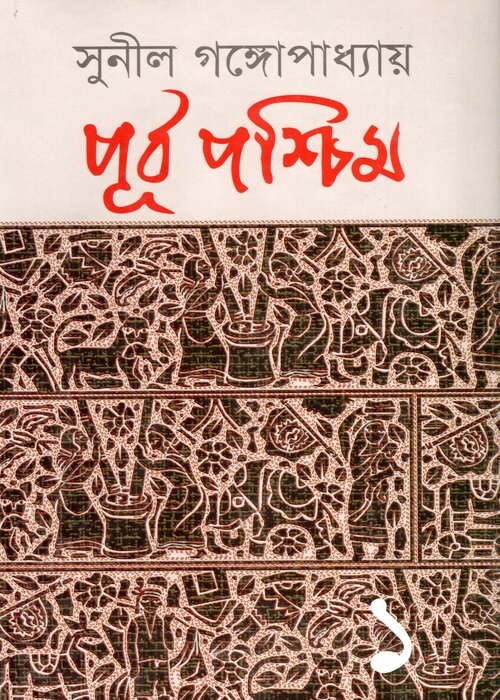 সুনীল গঙ্গোপাধ্যায়
পূর্ব পশ্চিম
১